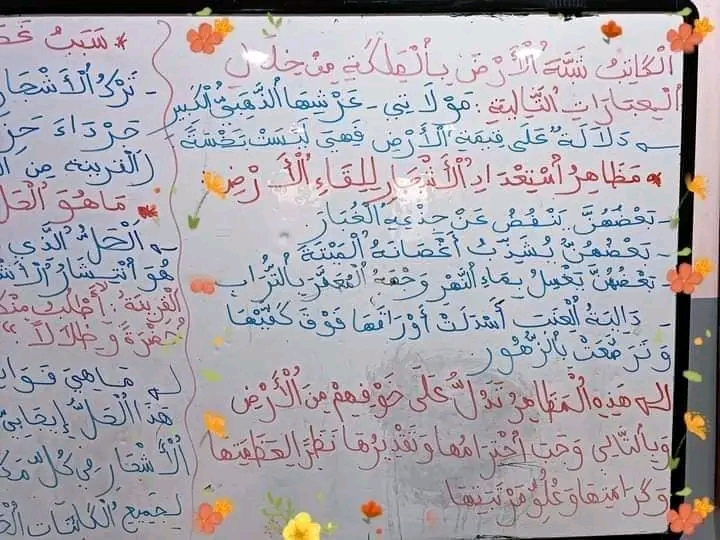 الْكَاتِبُ شَبَّهَ الْأَرْضَ بِالْمَلِكَةِ مِنْ خِلَالِ
الْعِبَارَاتِ التَّالِيَةِ: مَوْلَاتِي - عَرْشِهَا الذَّهَبِيُّ الْكَبِير
دَلَالَةٌ عَلَى قِيمَةِ الْأَرْضِ فَهِيَ لَيْسَتْ بَخْسَةً
* مَظَاهِرُ اسْتِعْدَادِ الْأَشْجَارِ لِلِقَاءِ الْأَرْضِ
- بَعْضُهُنَّ يَنْفُضُ عَنْ جِذْعِهِ الْغُبَارَ
- بَعْضُهُنَّ يُشَذِّبُ أَغْصَانَهُ الْمَيِّتَةَ
- بَعْضُهُنَّ يَغْسِلُ بِمَاءِ النَّهْرِ وَجْهَهُ الْمُعَفَّرَ بِالتُّرَابِ
- دَالِيَةُ الْعِنَبِ أَسْدَلَتْ أَوْرَاقَهَا فَوْقَ كَتِفَيْهَا
وَتَرَصَّعَتْ بِالزُّهُورِ
هَذِهِ الْمَظَاهِرُ تَدُلُّ عَلَى خَوْفِهِمْ مِنَ الْأَرْضِ
وَبِالتَّالِي وَجَبَ احْتِرَامُهَا وَتَقْدِيرُهَا نَظَرًا لِعَظَمَتِهَا
وَكَرَامَتِهَا وَعُلُوِّ مَرْتَبَتِهَا
* سَبَبُ
- تَرْكُ الْأَشْجَار
جَرْدَاءَ
(الْقَرِينَةُ مِنَ
* مَا هُوَ الْحَلُّ
الْحَلُّ الَّذِي
هُوَ انْتِشَارُ الْأَشْ
الْقَرِينَةُ: "أَطْلُبُ مِنْكَ
خُضْرَةً وَظِلَالًا"
مَا هِيَ فَوَائِ
هَذَا الْحَلُّ إِيجَابِيٌّ
الْأَشْجَارِ فِي كُلِّ مَكَ
لِجَمِيعِ الْكَائِنَاتِ الْحَ